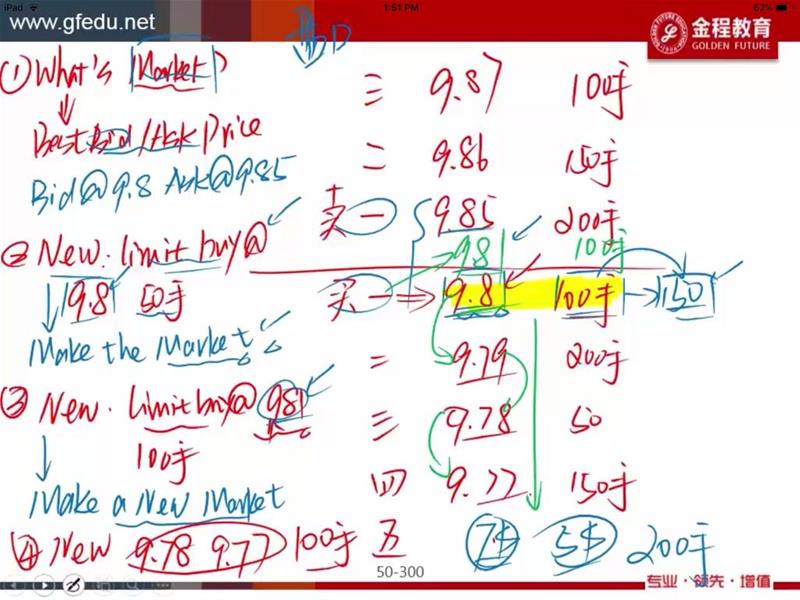 iPad
1:51 PM
62%
www.gfedu.net
金程教育
GOLDEN FUTURE
① What's Market?
Best Bid/Ask Price
Bid@9.8 Ask@9.85
② New. limit buy@
9.8 50手
Make the Market
③ New. limit buy@ 981
100手
Make a New Market
④ New 9.78 9.77 100手
三 9.87 100手
二 9.86 150手
卖一 9.85 200手
9.8 100手
买一 ⇒ 9.8 100手 → 150
二 9.79 200手
三 9.78 50
四 9.77 150手
五 7$ 5$ 200手
50-300
专业·领先·增值